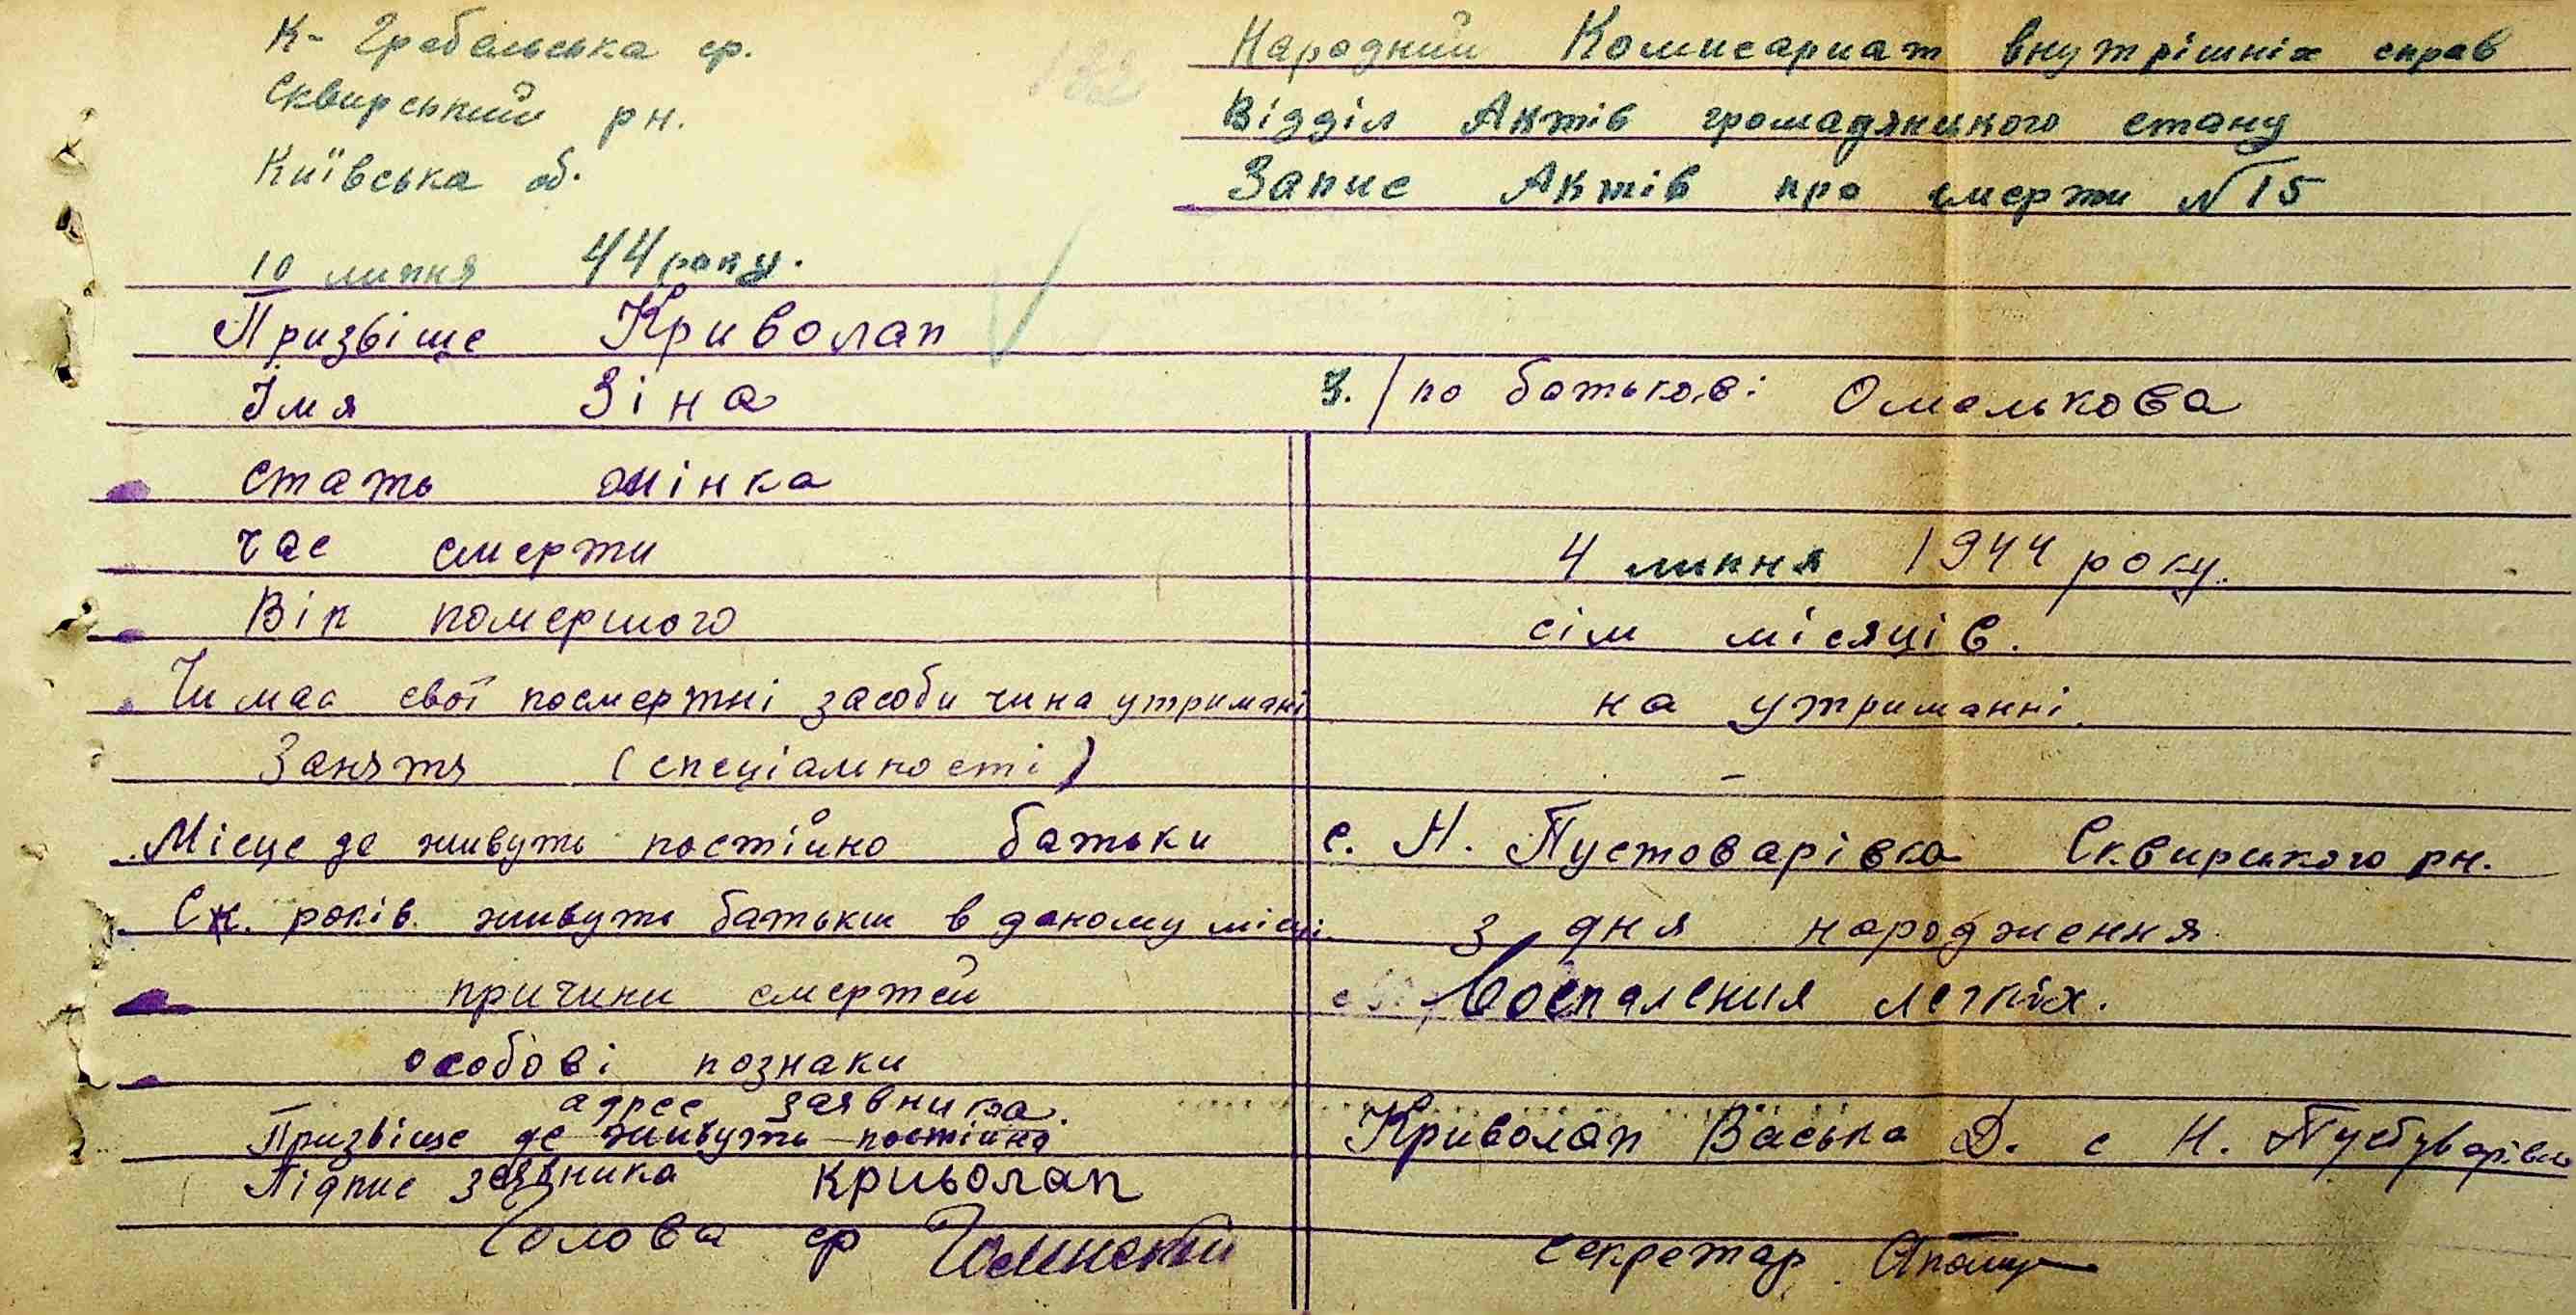 К- Гребельська ср.
Сквирський рн.
Київська об.
132
Народний Комисариат внутрішніх справ
Відділ Актів громадянцкого стану
Запис Актів про смерти №15
10 липня 44 року.
Призвіще Криволап
Імя Зіна 3. / по батькові: Омелькова
стать жінка
час смерти 4 липня 1944 року.
Вік помершого сім місяців.
Чи має свої посмертні засоби чи на утримані на утриманні.
Заняття (спеціальності) –
Місце де живуть постійно батьки с. Н. Пустоварівка Сквирського рн.
Ск. років живуть батьки в даному місці з дня народження
причини смертей Воспаления легкіх.
особові познаки
адрес заявника.
Призвіще де живуть постійно Криволап Васька Д. с Н. Пусбуварівка
Підпис заявника криволап
Голова ср
секретар